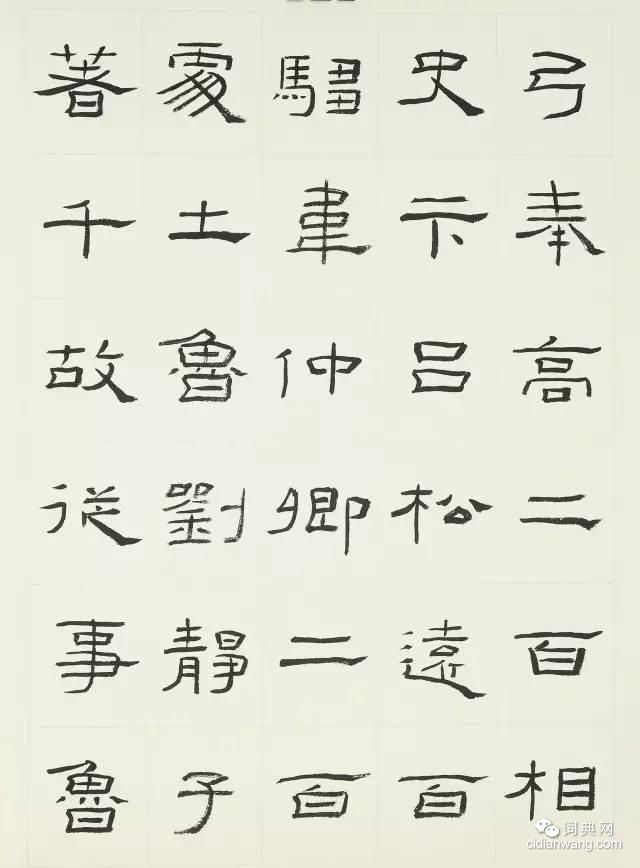 弓奉高二百相
史卞吕松遠百
騶韋仲卿二百
處土魯劉靜子
著千故從事魯
词典网
cidianwang.com